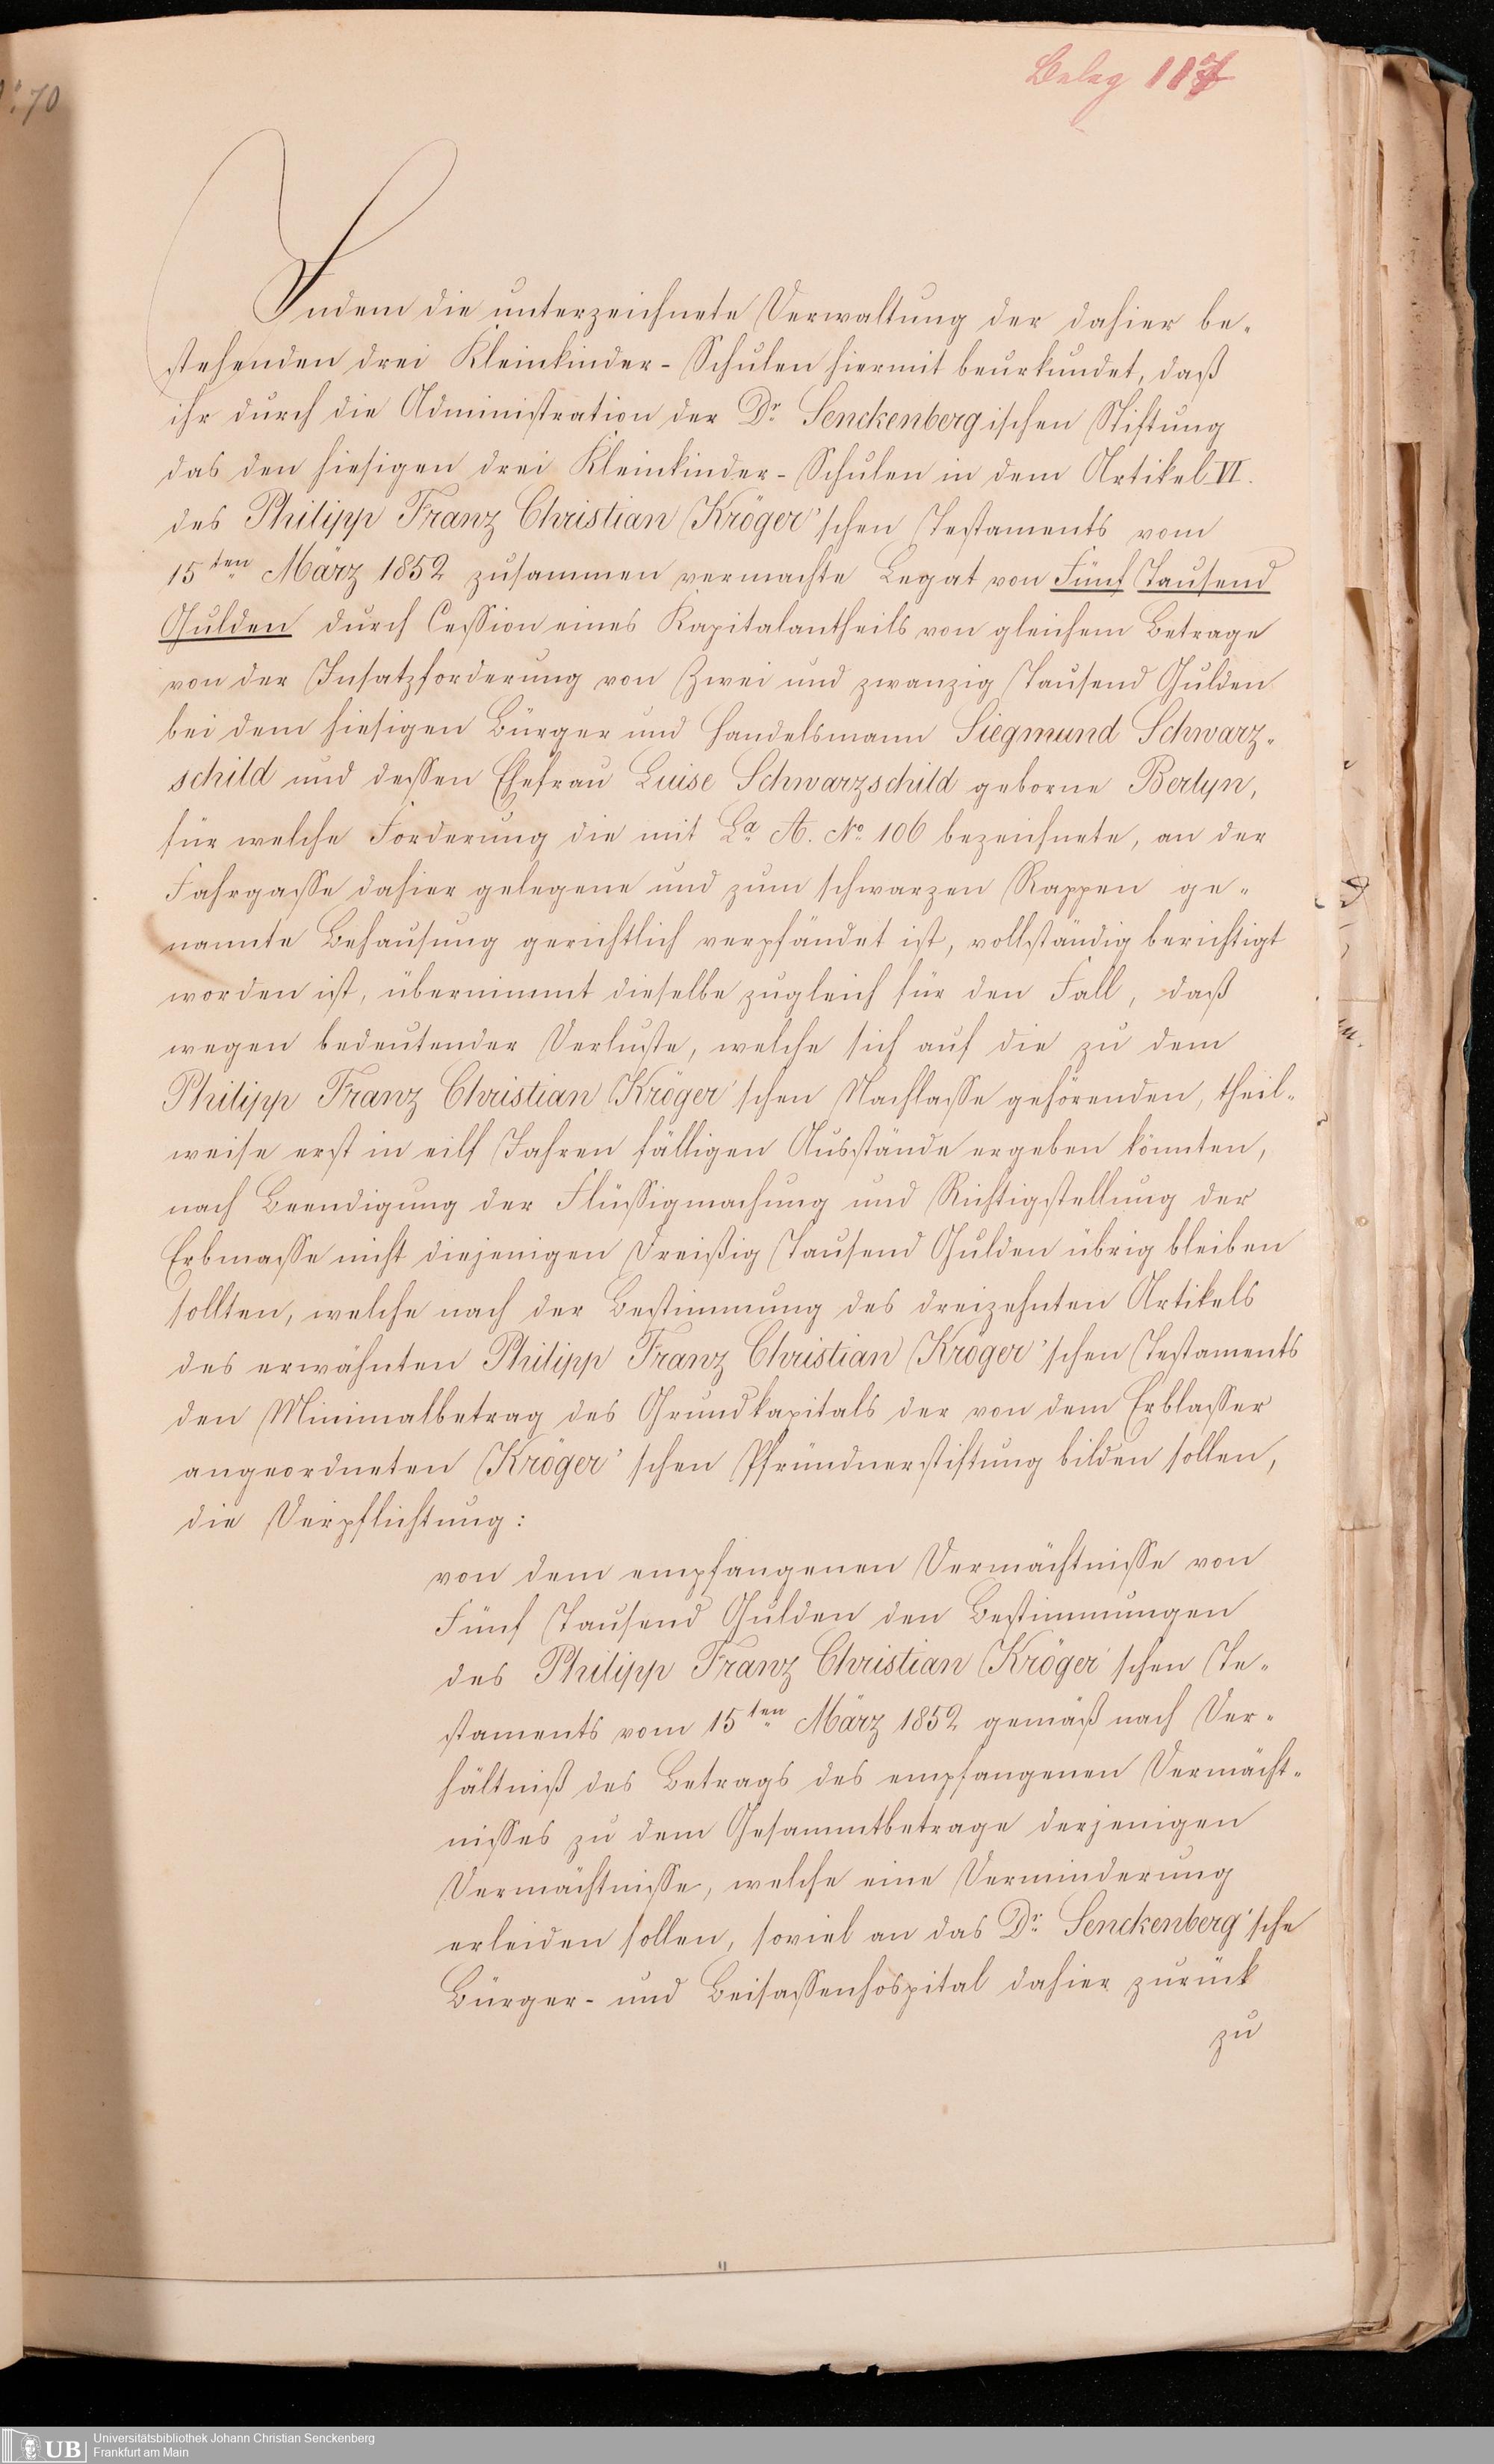 Beleg 117
№ 70
Indem die unterzeichnete Verwaltung der dahier be-
stehenden drei Kleinkinder-Schulen hiermit beurkundet, daß
ihr durch die Administration der Dr. Senckenbergischen Stiftung
das den hiesigen drei Kleinkinder-Schulen in dem Artikel VI.
des Philipp Franz Christian Kröger'schen Testaments vom
15ten März 1852 zusammen vermachte Legat von Fünf Tausend
Gulden durch Cession eines Kapitalantheils von gleichem Betrage
von der Insatzforderung von Zwei und zwanzig Tausend Gulden
bei dem hiesigen Bürger und Handelsmann Siegmund Schwarz-
schild und dessen Ehefrau Luise Schwarzschild geborne Berlyn,
für welche Forderung die mit La. A. No. 106 bezeichnete, an der
Fahrgasse dahier gelegene und zum schwarzen Rappen ge-
nannte Behausung gerichtlich verpfändet ist, vollständig berichtigt
worden ist, übernimmt dieselbe zugleich für den Fall, daß
wegen bedeutender Verluste, welche sich auf die zu dem
Philipp Franz Christian Kröger'schen Nachlasse gehörenden, theil-
weise erst in eilf Jahren fälligen Ausstände ergeben könnten,
nach Beendigung der Flüssigmachung und Richtigstellung der
Erbmasse nicht diejenigen Dreißig Tausend Gulden übrig bleiben
sollten, welche nach der Bestimmung des dreizehnten Artikels
des erwähnten Philipp Franz Christian Kröger'schen Testaments
den Minimalbetrag des Grundkapitals der von dem Erblasser
angeordneten Kröger'schen Pfründnerstiftung bilden sollen,
die Verpflichtung:
von dem empfangenen Vermächtnisse von
Fünf Tausend Gulden den Bestimmungen
des Philipp Franz Christian Kröger'schen Te-
staments vom 15ten März 1852 gemäß nach Ver-
hältniß des Betrags des empfangenen Vermächt-
nisses zu dem Gesammtbetrage derjenigen
Vermächtnisse, welche eine Verminderung
erleiden sollen, soviel an das Dr. Senckenberg'sche
Bürger- und Beisassenhospital dahier zurück
zu
UB
Universitätsbibliothek Johann Christian Senckenberg
Frankfurt am Main